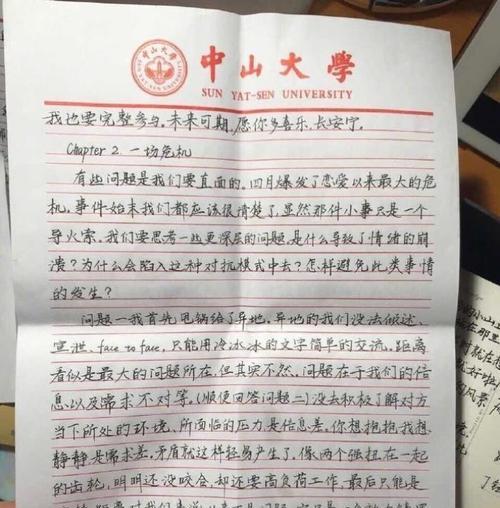 中山大學
SUN YAT-SEN UNIVERSITY
我也要完整参与。未来可期，愿你多喜乐、长安宁。
Chapter 2. 一场危机
有些问题是我们要直面的，四月爆发了恋爱以来最大的危
机，事件始末我们都应该很清楚了，显然那件小事只是一个
导火索。我们要思考一些更深层的问题，是什么导致了情绪的崩
溃？为什么会陷入这种对抗模式中去？怎样避免此类事情
的发生？
问题一我首先甩锅给了异地，异地的我们没法倾述、
宣泄、face to face，只能用冷冰冰的文字简单的交流。距离
看似是最大的问题所在，但其实不然，问题在于我们的信
息以及需求不对等。（顺便回答问题二）没去积极了解对方
当下所处的环境、所面临的压力是信息差。你想抱抱我想
静静是需求差。矛盾就这样轻易产生了，像两个强扭在一起
的齿轮，明明还没咬合，却还要高负荷工作，最后只能是